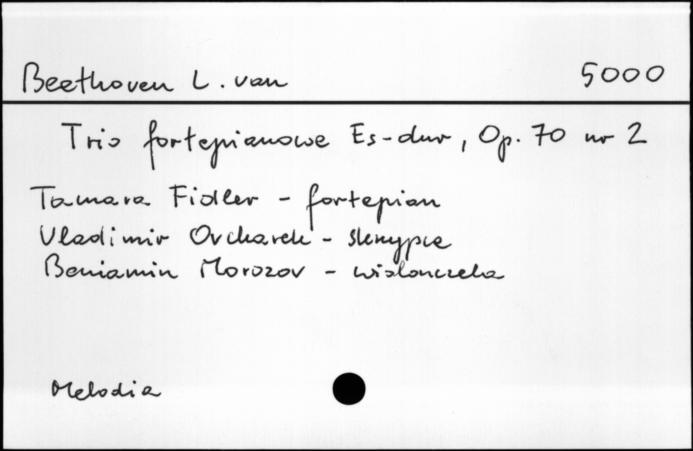 Beethoven L. van 5000
Trio fortepianowe Es-dur, Op. 70 nr 2
Tamara Fidler - fortepian
Vladimir Ovcharek - skrzypce
Beniamin Morozov - wiolonczela
Melodia